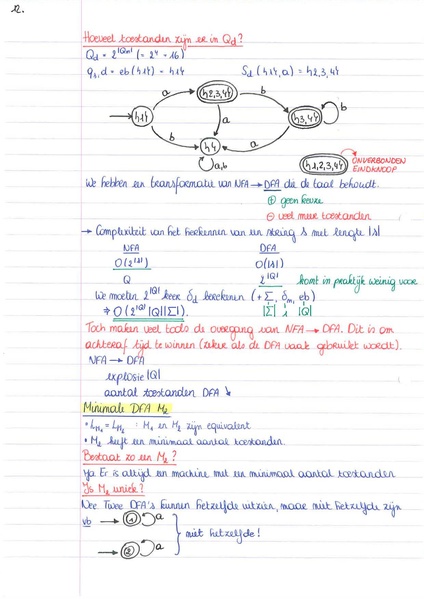 12.
Hoeveel toestanden zijn er in Qd?
Qd = 2^|Qn| (= 2⁴ = 16)
qs,d = eb({1}) = {1}
δd({1}, a) = {2,3,4}
a
{2,3,4}
b
{1}
a
{3,4}
b
b
{4}
a
a,b
{1,2,3,4}
ONVERBONDEN
EINDKNOOP
We hebben een transformatie van NFA → DFA die de taal behoudt.
⊕ geen keuze
⊖ veel meer toestanden
→ Complexiteit van het herkennen van een string s met lengte |s|
NFA DFA
O(2^|s|) O(|s|)
Q 2^|Q| komt in praktijk weinig voor
We moeten 2^|Q| keer δd berekenen (+ Σ, δn, eb)
⇒ O(2^|Q| |Q||Σ|). |Σ| 1 |Q|
Toch maken veel tools de overgang van NFA → DFA. Dit is om
achteraf tijd te winnen (zeker als de DFA vaak gebruikt wordt).
NFA → DFA
explosie |Q|
aantal toestanden DFA ↘
Minimale DFA M2
• LM1 = LM2 : M1 en M2 zijn equivalent
• M2 heeft een minimaal aantal toestanden.
Bestaat zo een M2?
Ja Er is altijd een machine met een minimaal aantal toestanden
Is M2 uniek?
Nee Twee DFA's kunnen hetzelfde uitzien, maar niet hetzelfde zijn
vb
1
a
niet hetzelfde!
2
a